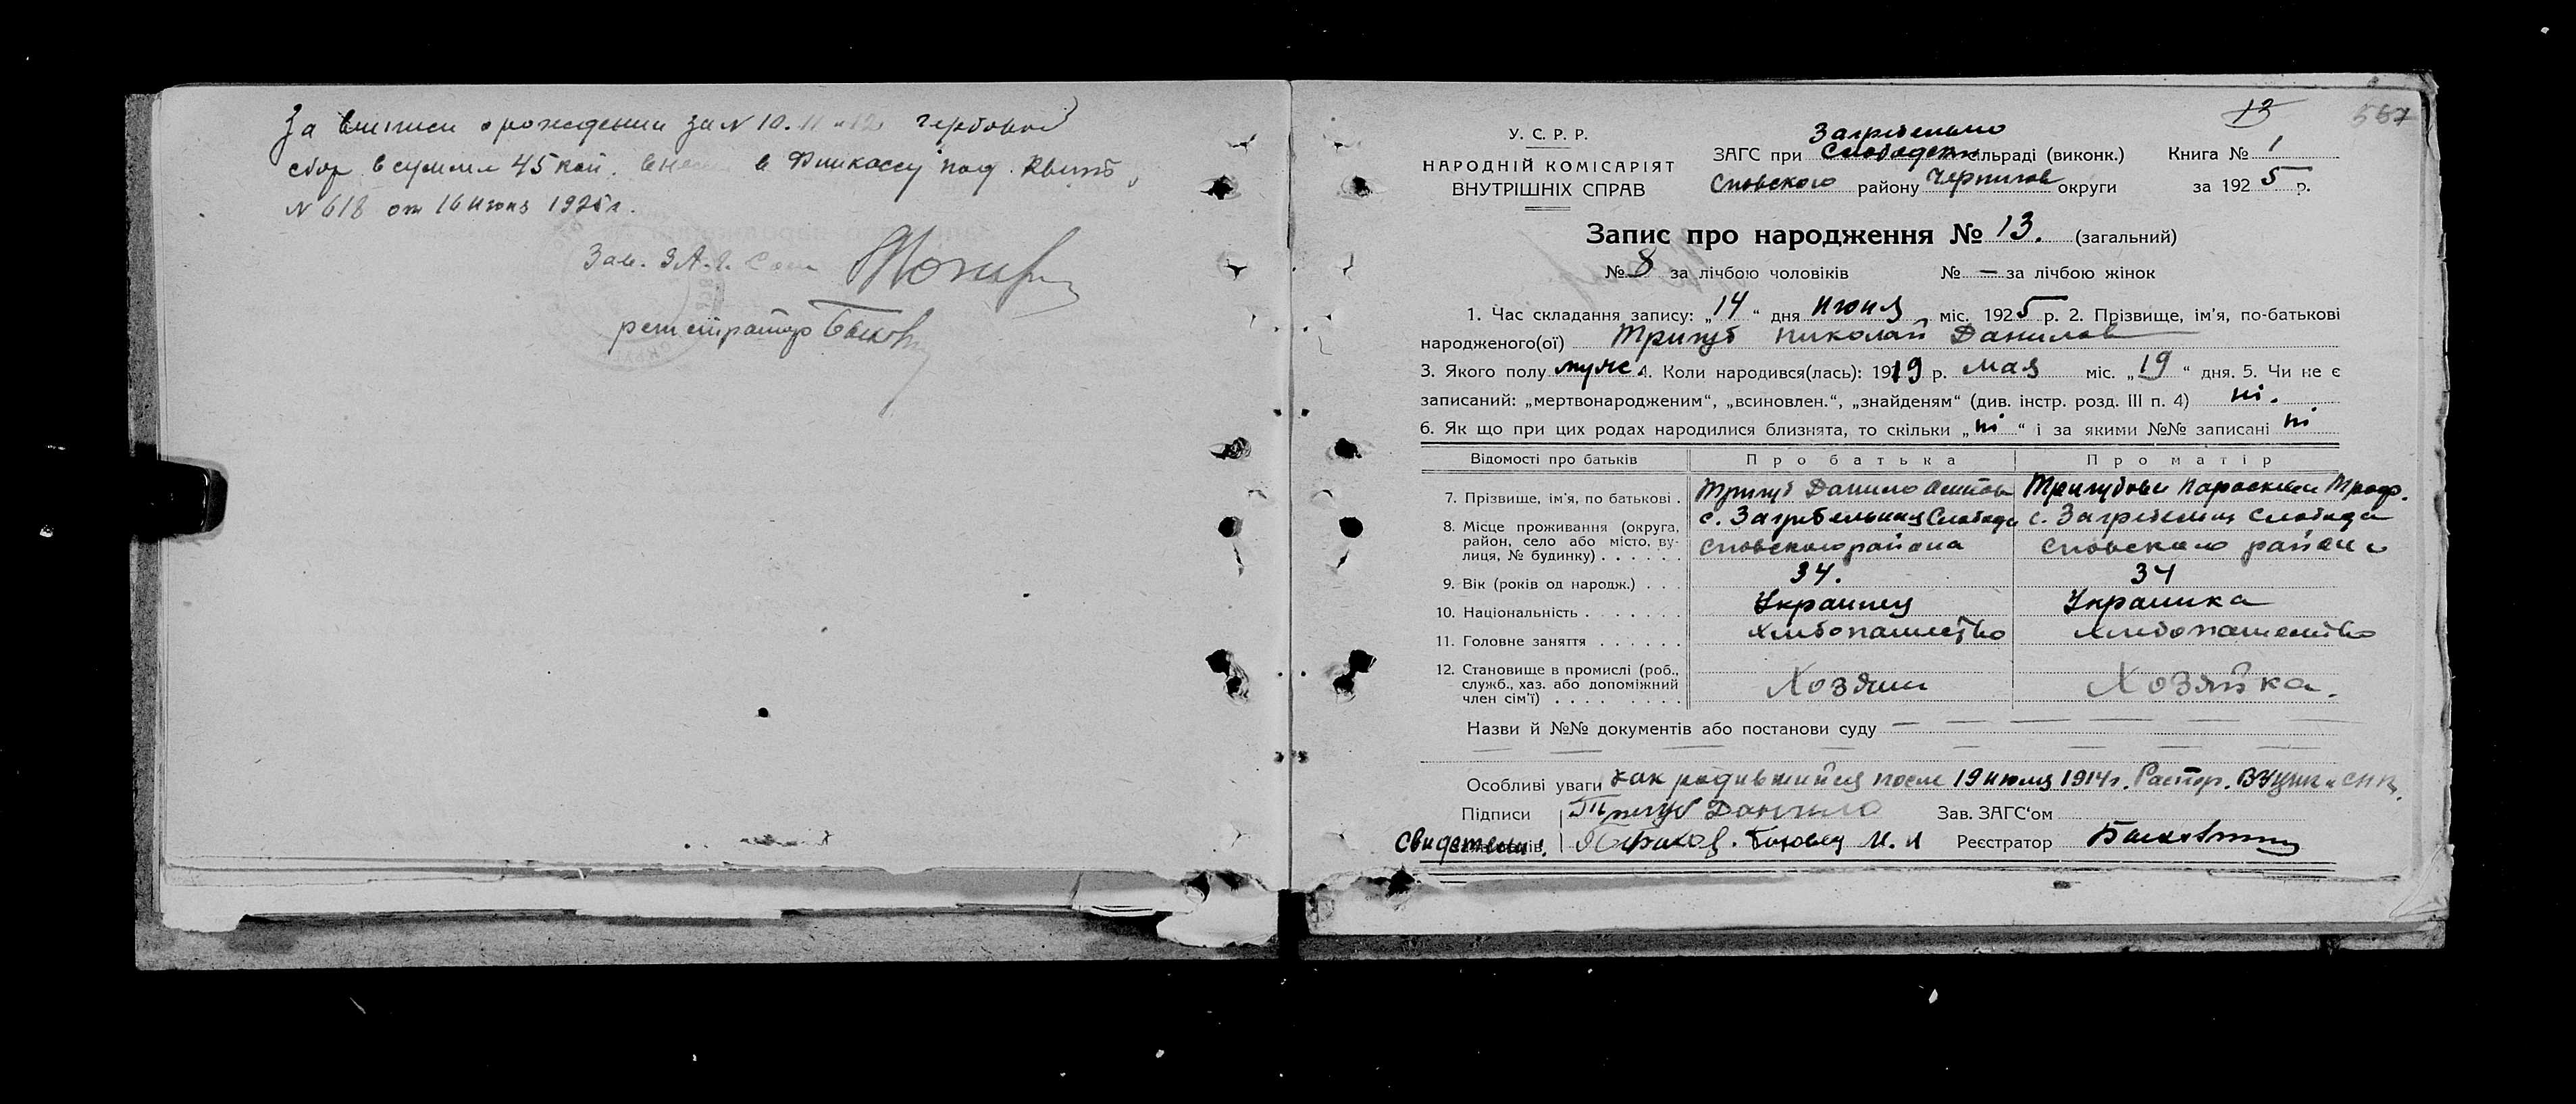 За выписи о рождении за № 10. 11 и 12 гербовой
сбор в сумме 45 коп. внес в Финкассу под Квит.
№ 618 от 16 июня 1925 г.
Зав. ЗАГСом
регистратор
13
567
У. С. Р. Р.
НАРОДНІЙ КОМІСАРІЯТ
ВНУТРІШНІХ СПРАВ
Загребельно
ЗАГС при Слободск сільраді (виконк.) Книга № 1
Сновского району Чернигов округи за 1925 р.
Запис про народження № 13. (загальний)
№ 8 за лічбою чоловіків № — за лічбою жінок
1. Час складання запису: „14“ дня июня міс. 1925 р. 2. Прізвище, ім'я, по-батькові
народженого(ої) Тригуб Николай Данилов
3. Якого полу муж. 4. Коли народився(лась): 1919 р. мая міс. „19“ дня. 5. Чи не є
записаний: „мертвонародженим“, „всиновлен.“, „знайденям“ (див. інстр. розд. III п. 4) ні.
6. Як що при цих родах народилися близнята, то скільки „ні“ і за якими №№ записані ні
Відомості про батьків Про батька Про матір
7. Прізвище, ім'я, по батькові . Тригуб Данило Тригубова Параскева Троф.
8. Місце проживання (округа, с. Загребельная Слобода с. Загребельная Слобода
район, село або місто, ву- Сновского района Сновского района
лиця, № будинку) . . . . .
9. Вік (років од народж.) . . . 34. 34
10. Національність . . . . . . . Украинец Украинка
11. Головне заняття . . . . . . Хлебопашество Хлебопашество
12. Становище в промислі (роб., Хозяин Хозяйка.
служб., хаз. або допоміжний
член сім'ї) . . . . . . . .
Назви й №№ документів або постанови суду — — — —
Особливі уваги как родившийся после 19 июля 1914 г. Распор. ВУЦИК и СНК.
Підписи Тригуб Данило Зав. ЗАГС'ом
Свидетели: М. Л Реєстратор